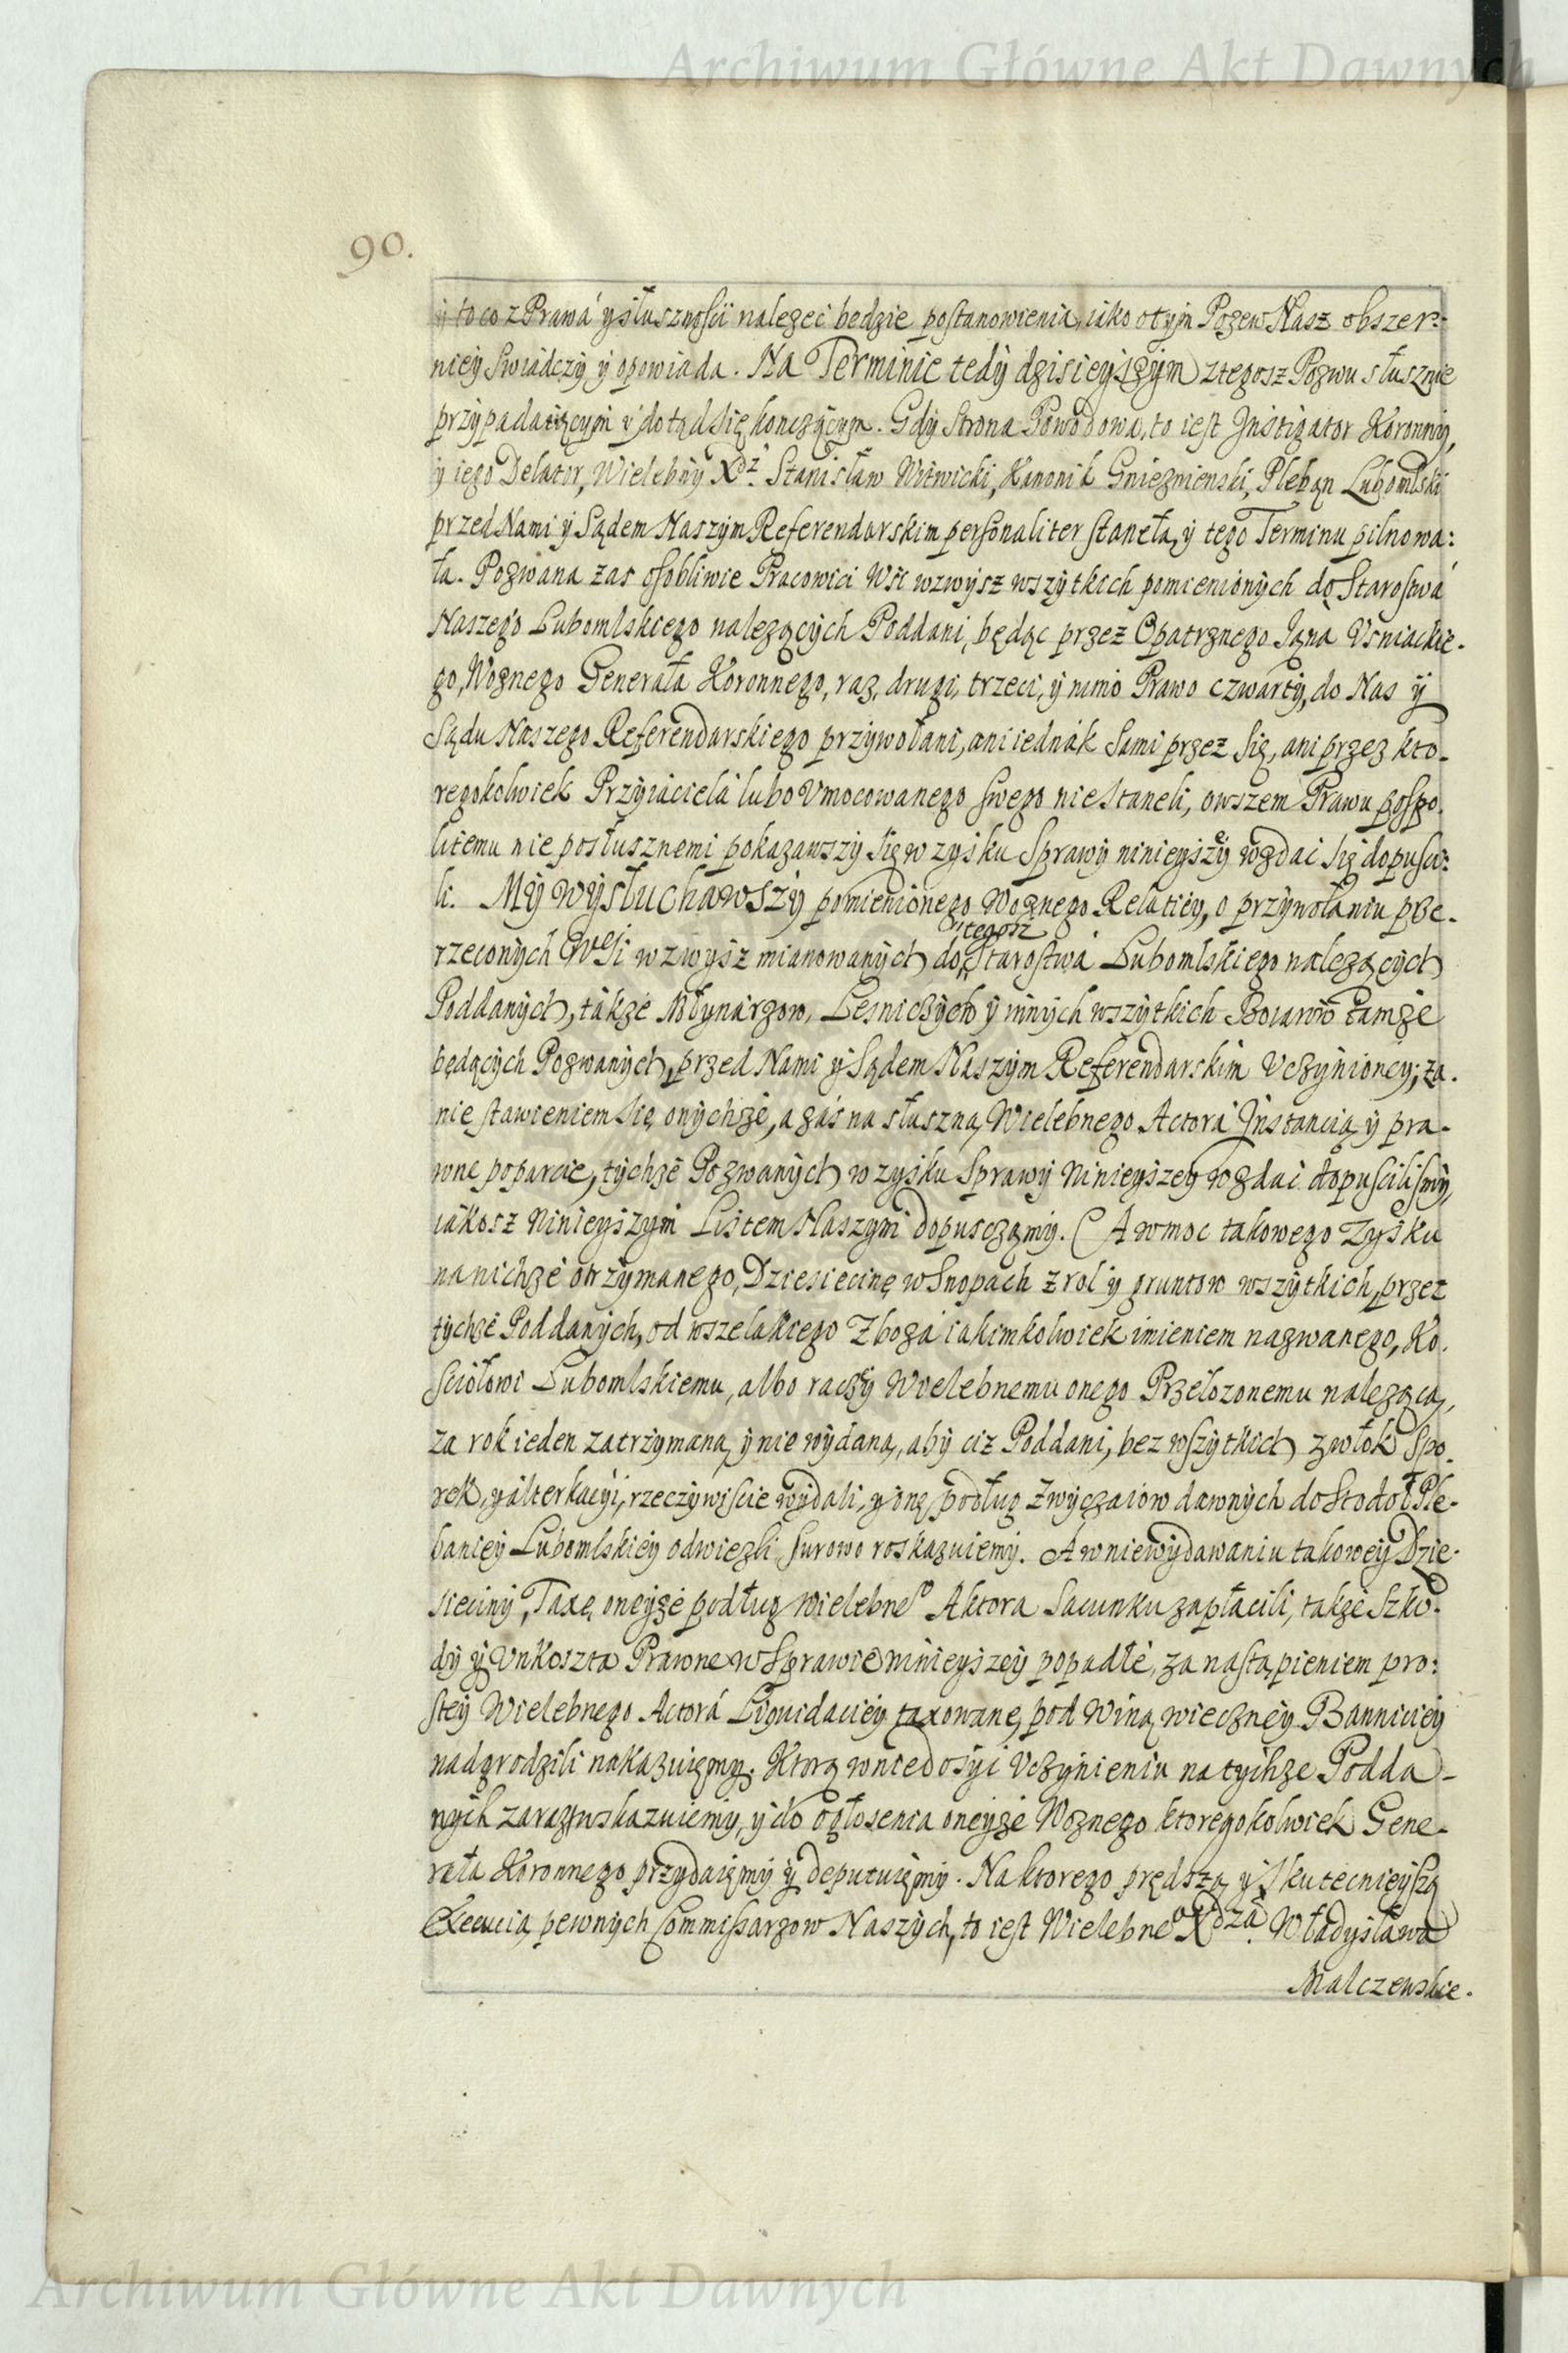 Archiwum Główne Akt Dawnych
90.
y to co z Prawá y słusznosći nalezeć będzie postanowienia, iáko o tym Pozew Nasz obszer-
niey swiadczy y opowiada. Na Terminie tedy dzisieyszym z tegosz Pozwu słusznie
przypadaiącym y dotąd się konczącym. Gdy Strona Powodowa, to iest Instigator Koronny,
y iego Delator, Wielebny Xdz. Stanisław Witwicki, Kanonik Gnieznienski, Pleban Lubomlski
przed Nami y Sądem Naszym Referendarskim personaliter stanęła, y tego Terminu pilnowa:
ła. Pozwana zas osobliwie Pracowici Wsi wzwysz wszytkich pomienionych do Starostwá
Naszego Lubomlskiego nalezących Poddani, będąc przez Opatrznego Jana Usniackie-
go, Woznego Generała Koronnego, raz, drugi, trzeci, y mimo Prawo czwarty, do Nas y
Sądu Naszego Referendarskiego przywołani, ani iednak sami przez się, ani przez kto-
regokolwiek Przyiacielá lubo Vmocowanego swego nie staneli, owszem Prawu pospo-
litemu nie posłusznemi pokazawszy się w zysku Sprawy ninieyszey wzdać się dopusci:
li. My wysłuchawszy pomienionego Woznego Relatiey, o przywołaniu prze-
rzeconych Wsi wzwysz mianowanych do tegosz Starostwá Lubomlskiego nalezących
Poddanych, także Młynarzow, Lesniczych y innych wszytkich Boiarow tamże
będących Pozwanych, przed Nami y Sądem Naszym Referendarskim Vczynioney; za
nie stawieniem się onychże, a zás na słuszną Wielebnego Actorá Instancią y pra-
wne poparcie, tychże Pozwanych w zysku Sprawy Ninieyszey wzdać dopuscilismy,
iákosz Ninieyszym Listem Naszym dopusczamy. A w moc takowego Zysku
na nichże otrzymanego, Dziesięcinę w Snopach z rol y gruntow wszytkich, przez
tychże Poddanych, od wszelakiego Zbożá iakimkolwiek imieniem nazwanego, Ko-
sciołowi Lubomlskiemu, albo raczy Wielebnemu onego Przełożonemu nalezącą,
za rok ieden zatrzymaną, y nie wydaną, aby ciz Poddani, bez wszytkich zwłok Spo-
rek, y álterkacyi, rzeczywiscie wydali, y onę podług zwyczaiow dawnych do Stodoł Ple-
baniey Lubomlskiey odwiezli, surowo roskazuiemy. A w niewydawaniu takowey Dzie-
sięciny, Taxę oneyże podług Wielebneo Aktora Sacunku zapłacili, także Szko-
dy y Vnkoszta Prawne w Sprawie ninieyszey popadłe, za nastąpieniem pro:
stey Wielebnego Actorá Liquidaciey taxowane, pod Winą wieczney Banniciey
nadgrodzili nakazuiemy. Ktorą w niedosyć Vczynieniu na tychże Podda-
nych zaraz wskazuiemy, y do ogłosenia oneyże Woznego ktoregokolwiek Gene-
rała Koronnego przydaiemy y deputuiemy. Na ktorego prędszą y skutecnieyszą
Execucią pewnych Commissarzow Naszych, to iest Wielebneo Xdzá. Władysława
Malczewskie-
Archiwum Główne Akt Dawnych